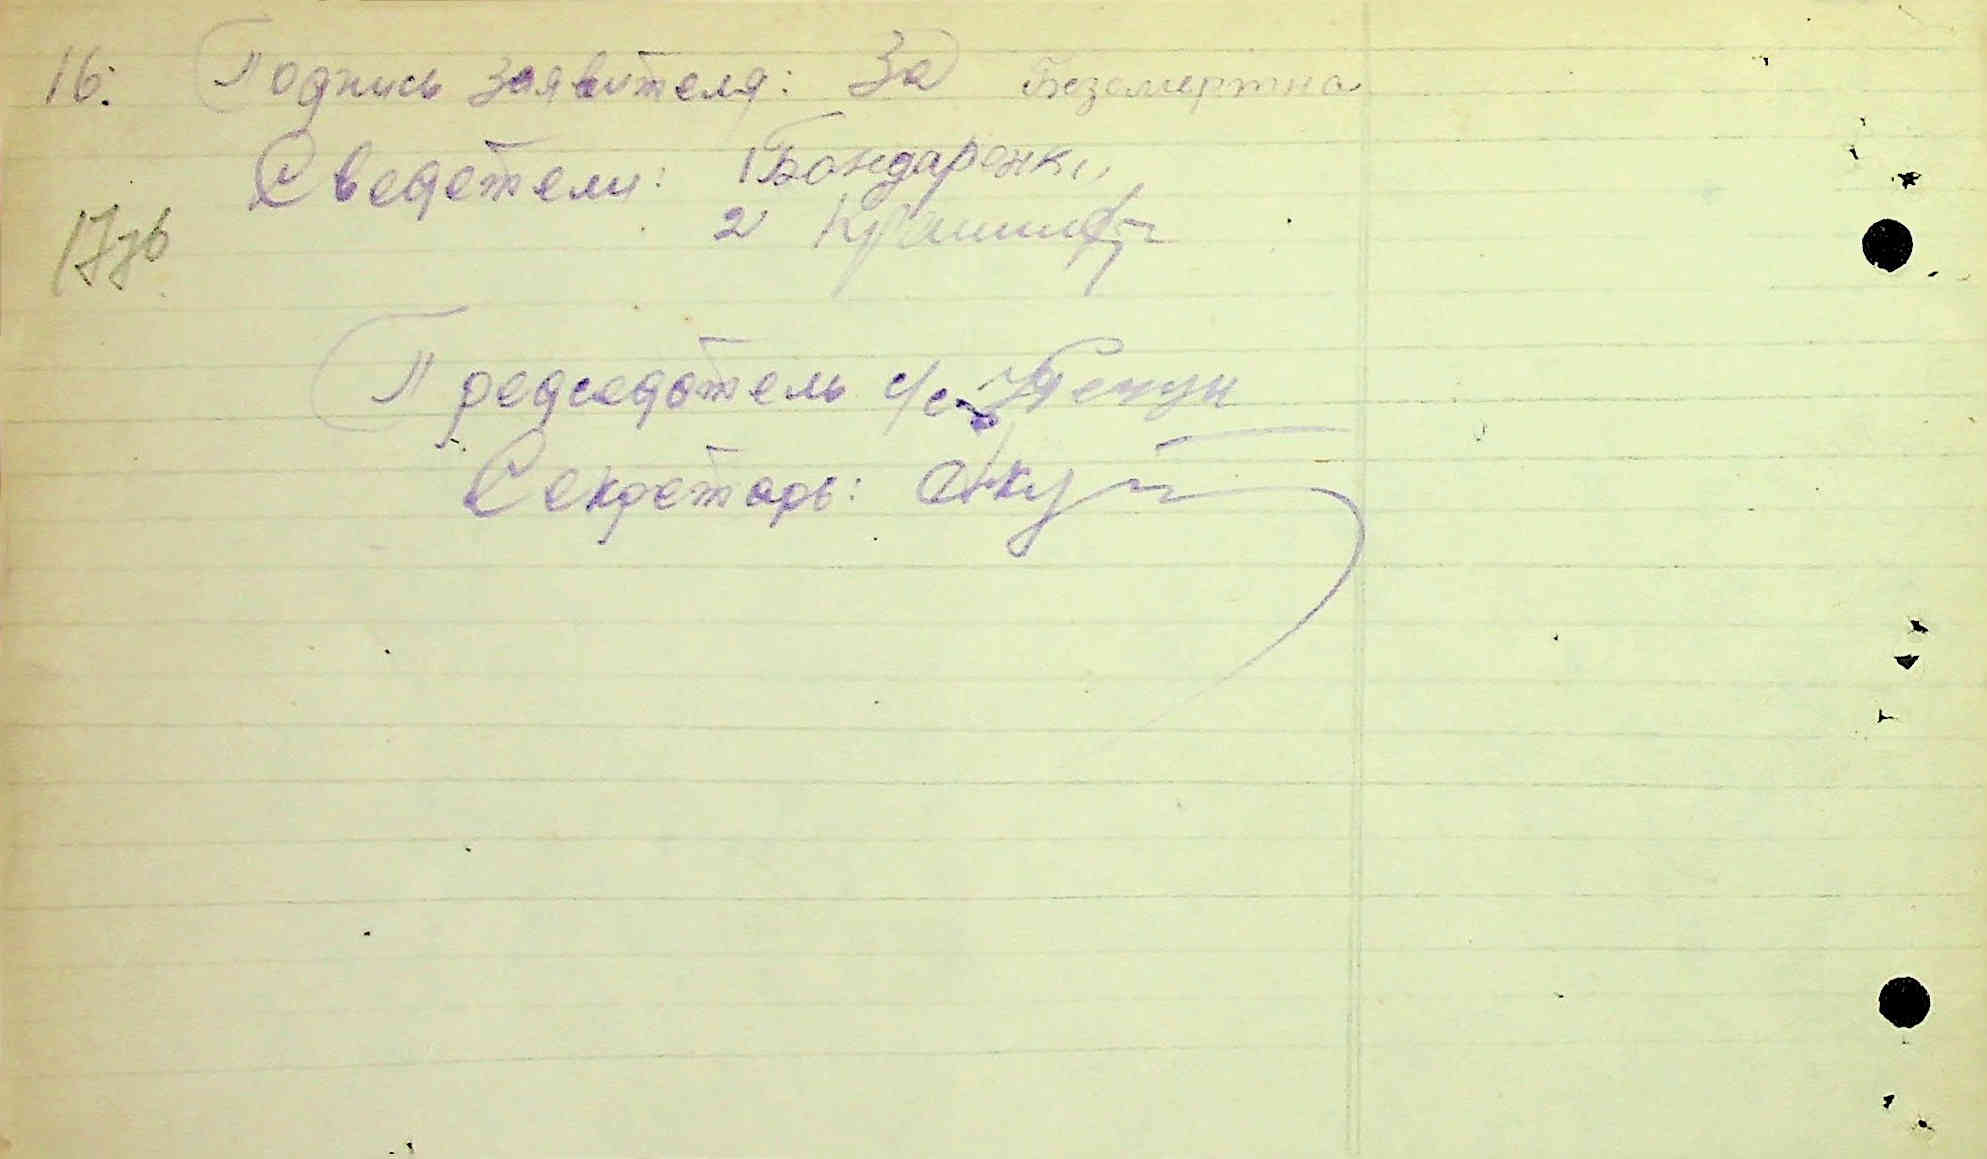 16. Подпись заявителя: За Безсмертна
Сведетели: 1 Бондаренк
2
17зв
Председатель с/с
Секретарь: